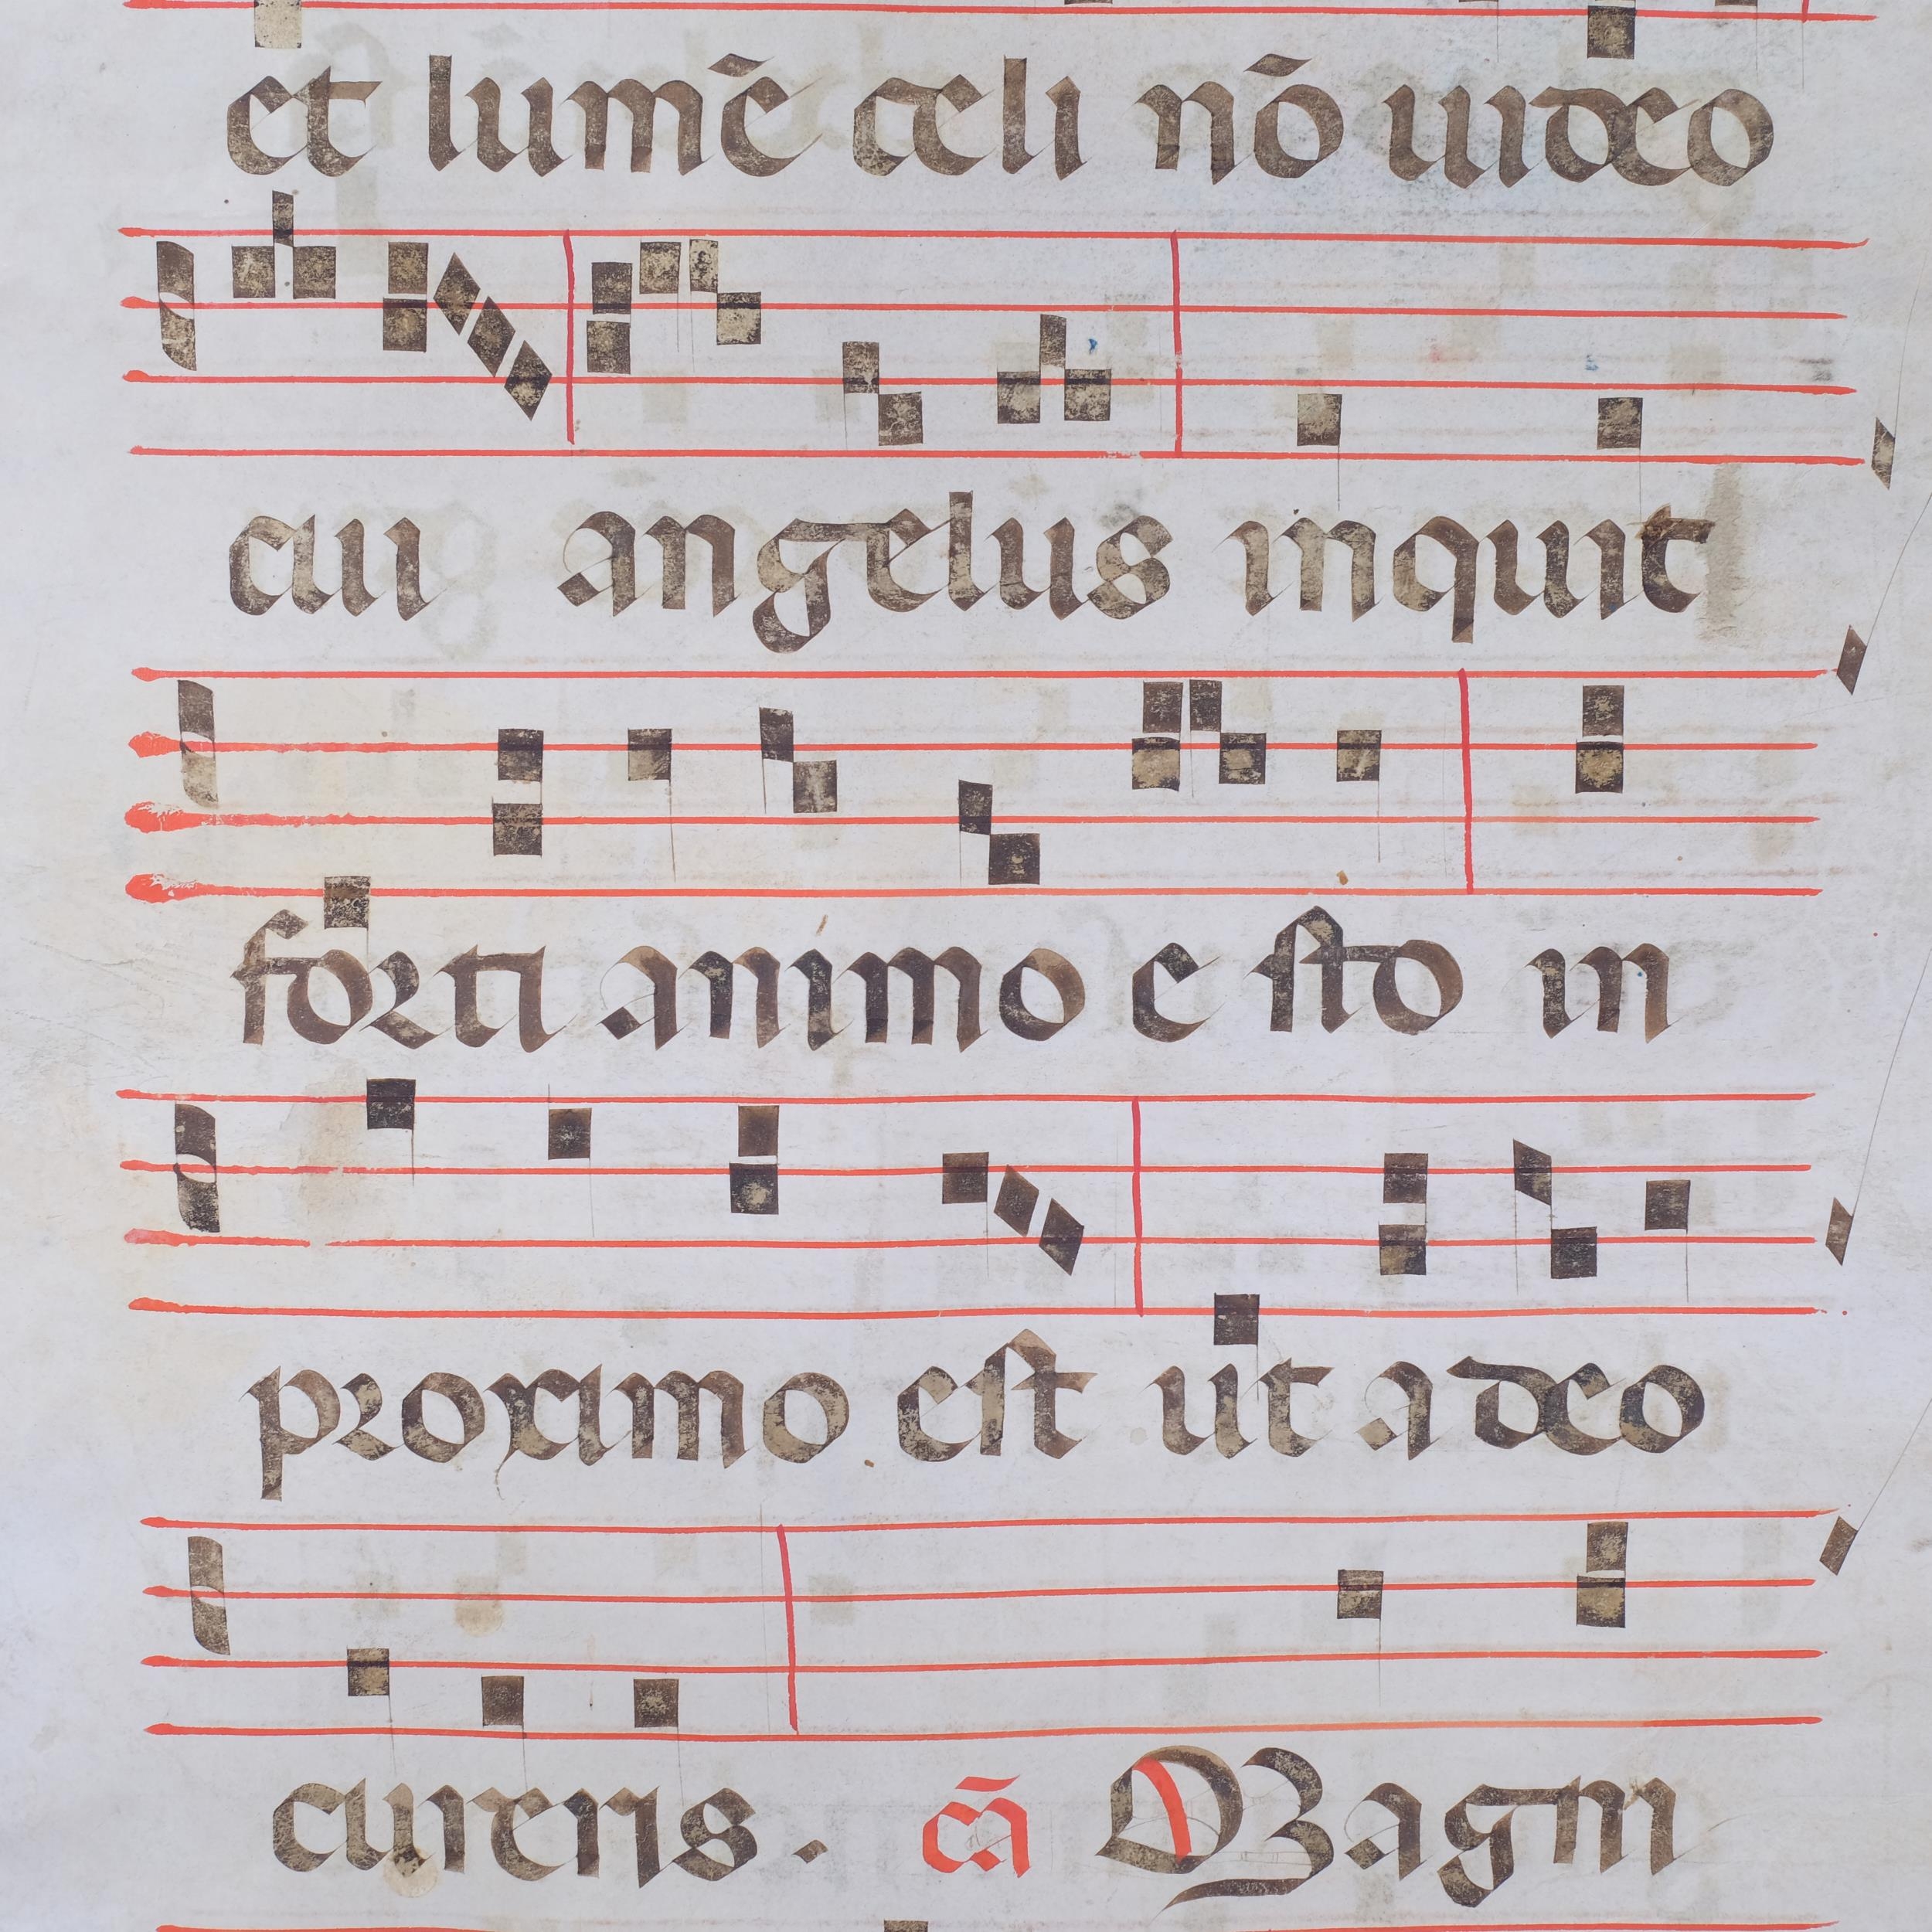 et lumē cæli nō uideo
cui angelus inquit
forti animo esto in
proximo est ut a deo
cureris. cā Magni